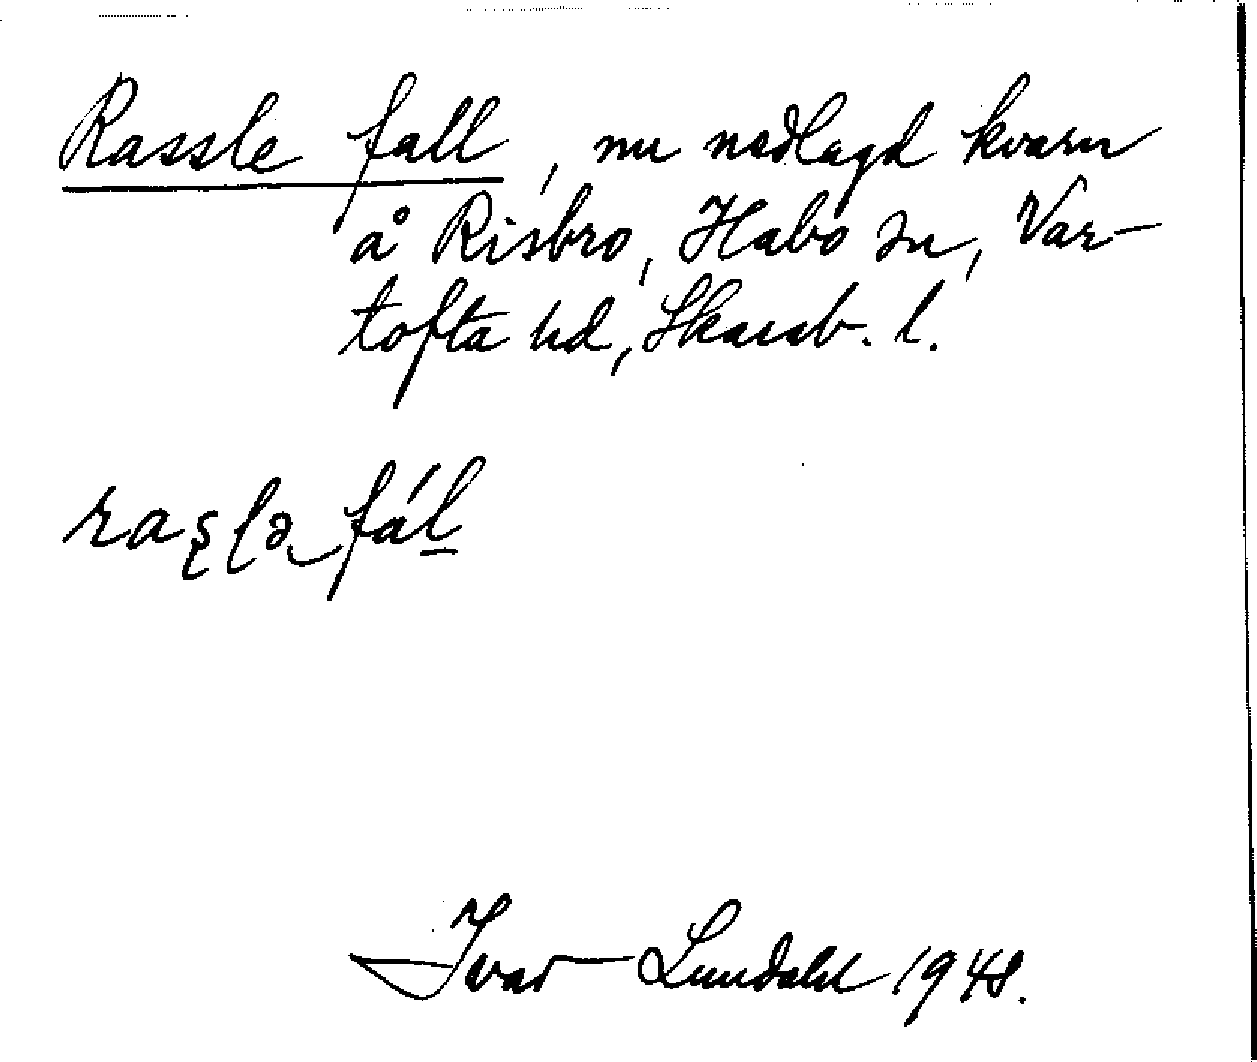 Rassle fall, nu nedlagd kvarn
å Risbro, Habo sn, Var-
tofta hd, Skarab. l.
raʂlə fál
Ivar Lundahl 1948.